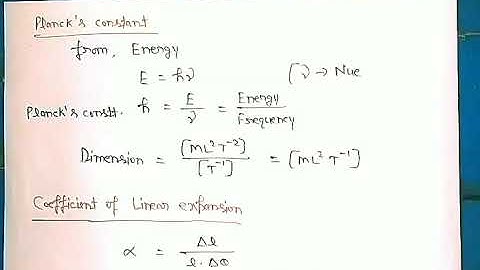 Planck's constant
from, Energy
E = hν [ν → Nue
Planck's constt. h = E/ν = Energy/Frequency
Dimension = [ML²T⁻²]/[T⁻¹] = [ML²T⁻¹]
Coefficient of Linear expansion
α = Δl/l·Δθ